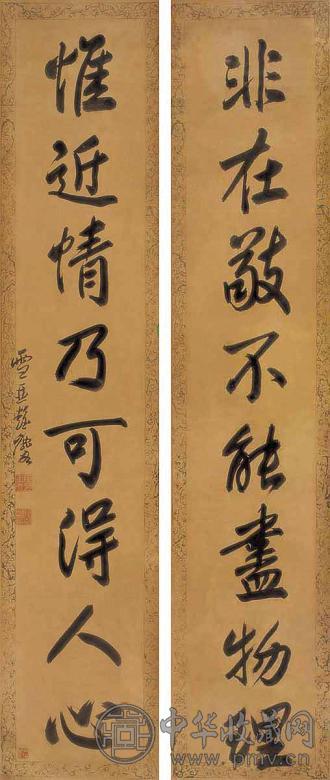 非在敬不能盡物理
惟近情乃可得人心
中华收藏网
www.pmrv.cn